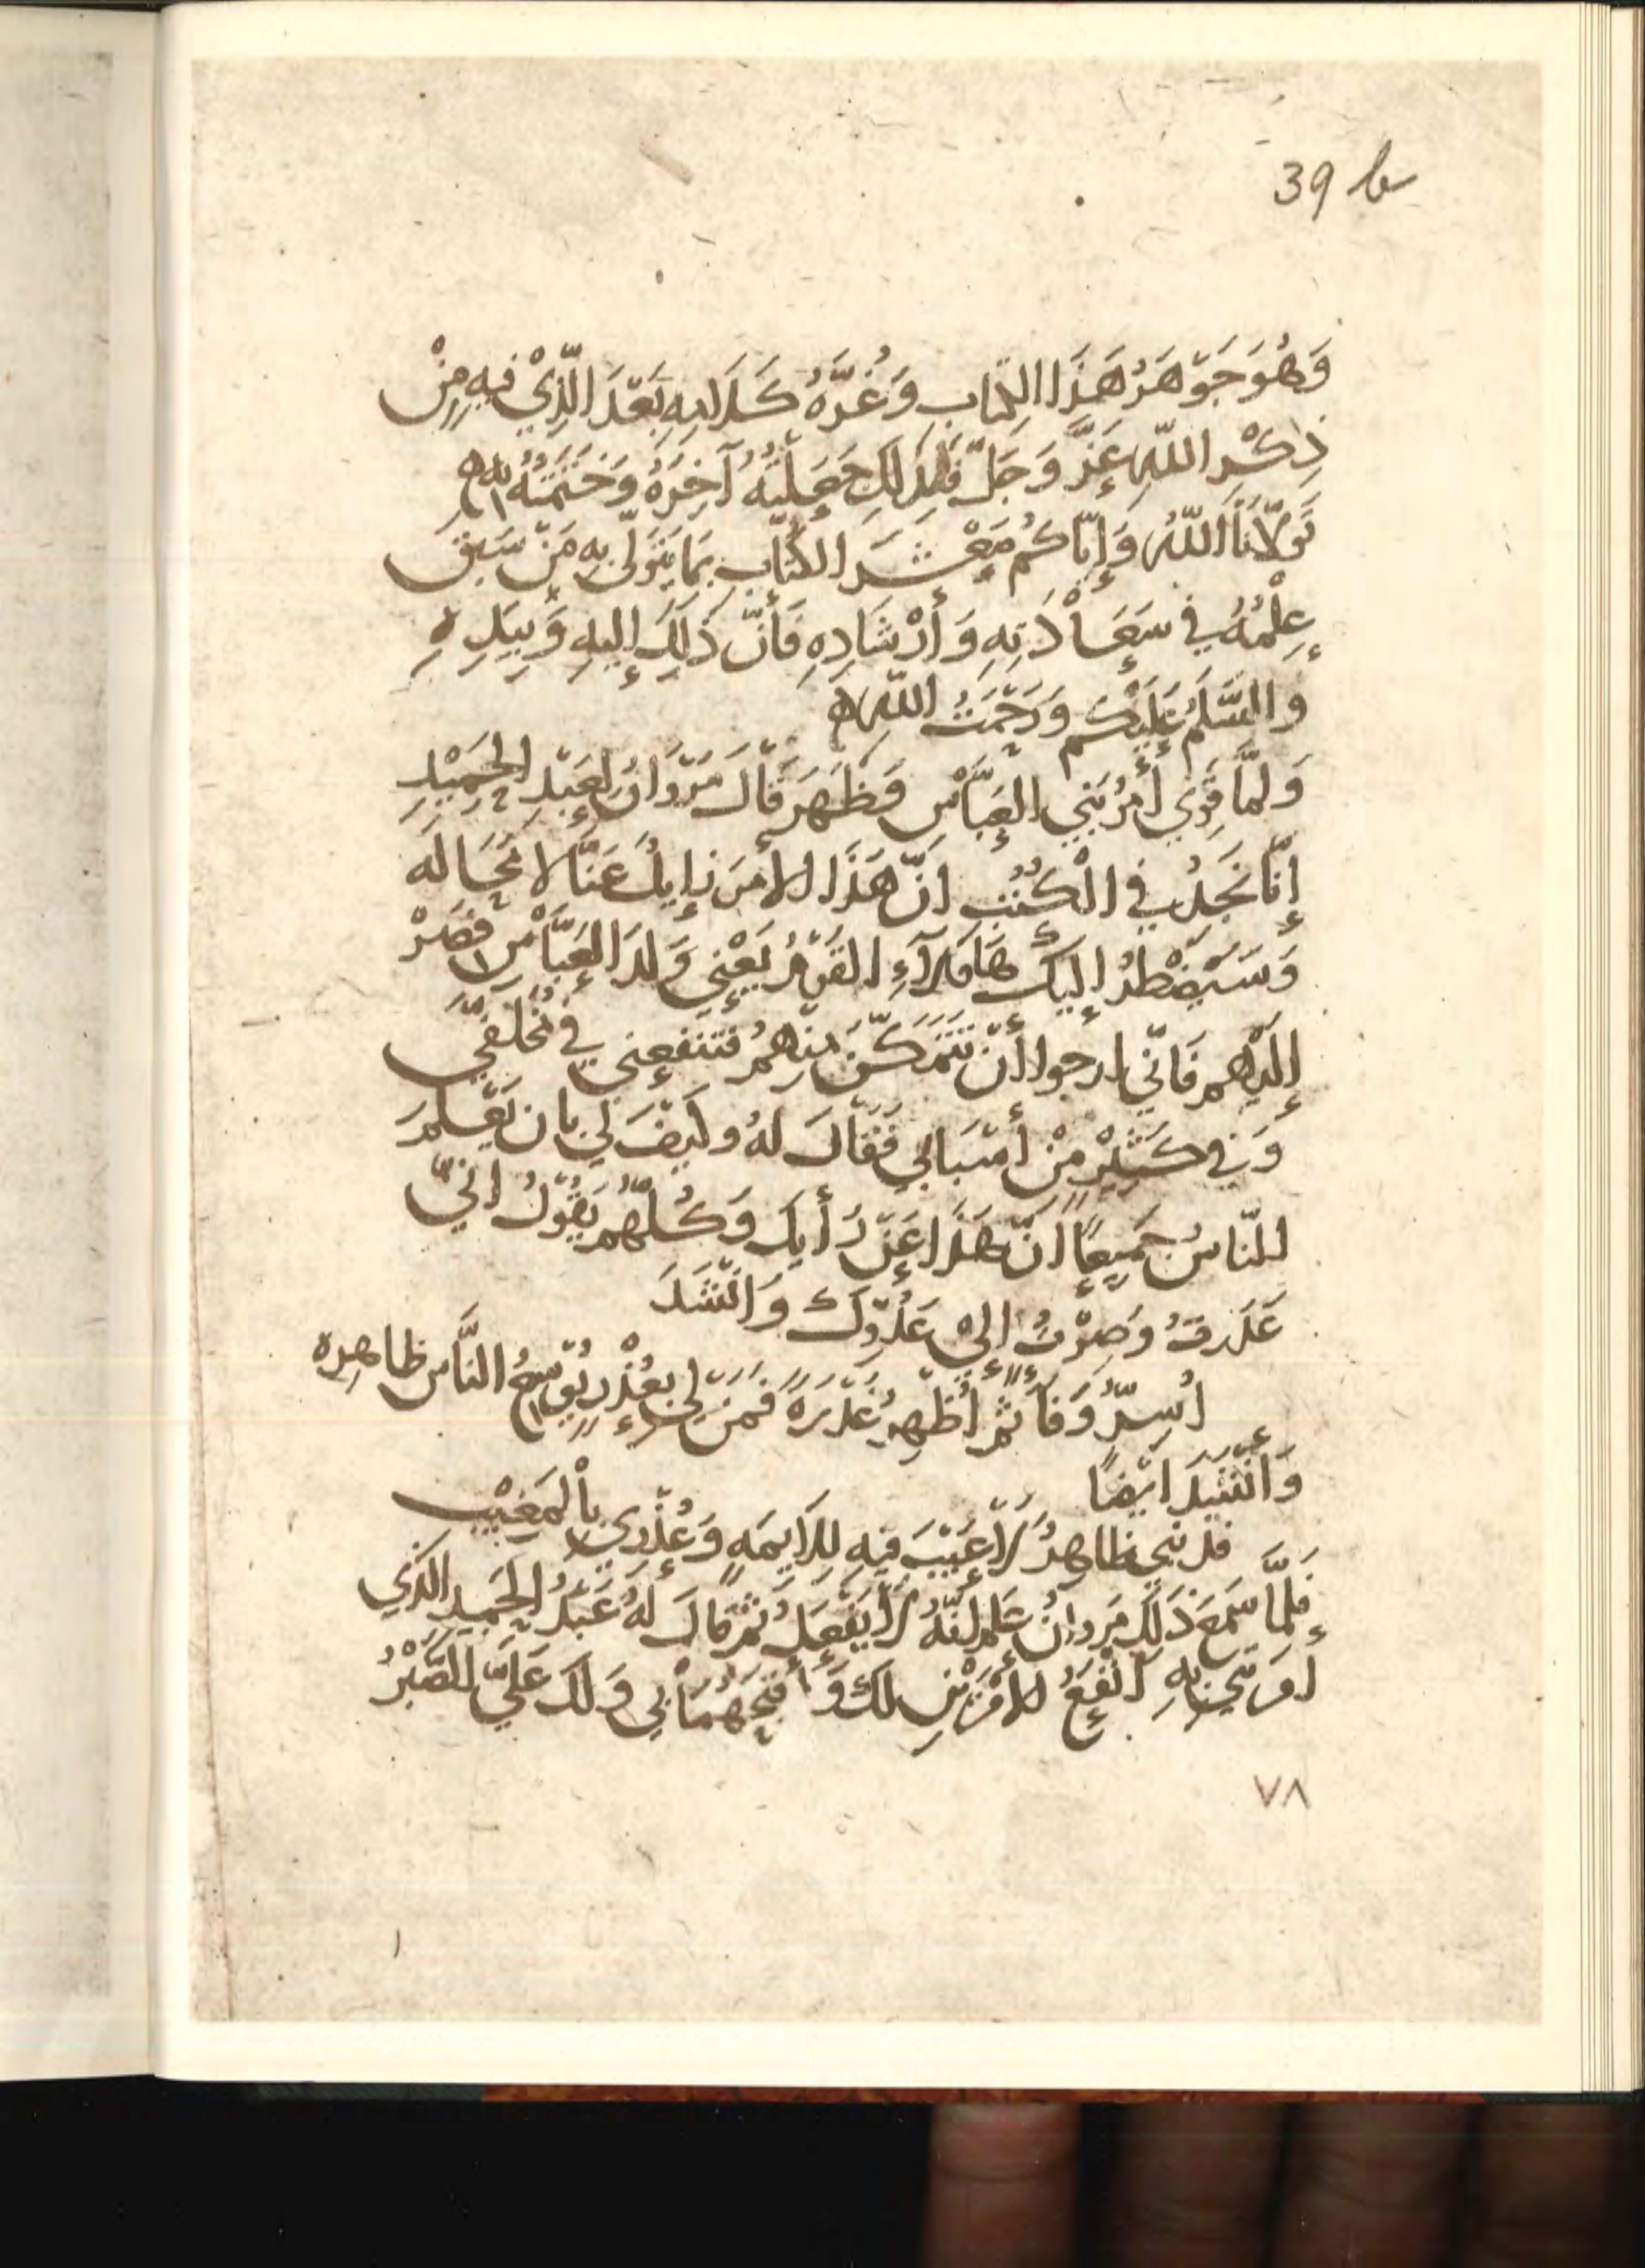 39 b
وَهُوَ جَوْهَرُ هَذَا الكِتَابِ وَغُرَّةُ كَلَامِهِ بَعْدَ الَّذِيْ فِيهِ مِنْ
ذِكْرِ اللَّهِ عَزَّ وَجَلَّ فَلِذَلِكَ جَعَلْتُهُ آخِرَهُ وَخَتَمْتُهُ بِهِ
تَوَلَّانَا اللَّهُ وَإِيَّاكُم مَعْشَرَ الكُتَّابِ بِمَا يَتَوَلَّى بِهِ مَنْ سَبَقَ
عِلْمُهُ فِي سَعَادَتِهِ وَأرْشَادِهِ فَأنَّ ذَلِكَ إليهِ وَبِيَدِهِ
والسَّلَمُ عَلَيْكُم وَرَحْمَتُ اللَّهِ
وَلمَّا قَوِيَ أمْرُ بَنِي العَبَّاسْ وَظَهَرَ قَالَ مَرْوَانُ لِعَبْدِ الحَمِيْدِ
إنَّا نَجِدُ فِي الْكُتُبِ انَّ هَذَا الامرَ زايِلُ عَنَّا لا مَحَاله
وَسَيَضْطَرُ إليكَ هَاوُلَآءِ القَوْمُ يَعْنِي وَلدَ العَبَّاسْ فَصِرْ
إلَيْهِم فَانّي ارجوا أنْ تَتَمَكَّنَ مِنْهُمْ فتنفعني فِي مُخَلَّفِي
وَفِي كَثِيْرٍ مِنْ أسْبَابِي فَقَالَ لهُ وكيْفَ لِي بان يَعْلمَ
للنّاسُ جَمِيعًا انَّ هَذَا عَنْ رَأيِكَ وَكُلُّهُم يَقُوْلُ انّي
غَدَرتُ وَصِرْتُ إلى عَدُوِّكَ وَانْشَدَ
أُسِرُّ وَفَاً ثُمَّ أُظْهِرُ غَدْرَةً فَمَنْ لِي بِعُذْرٍ يُوْسِعُ النَّاسَ ظاهِرِه
وَانْشَدَ ايْضًا
فذنبي ظاهِرُ لَا عَيْبَ فِيهِ لِلَايِمَهِ وَعُذْرِي بِالْمَغِيْبِ
فلمَّا سَمِعَ ذَلِكَ مَروانُ عَلمَ انَّهُ لَا يَفْعَلُ ثُمَّ قَالَ لَهُ عَبْدُ الحَمِيدِ الذِي
أمَرتَنِي بِهِ انْفَعُ الامْرَيْنِ لكَ وَأقبَحُهُمَا بِي وَلَكَ عَلَيَّ الصَّبْرُ
٧٨